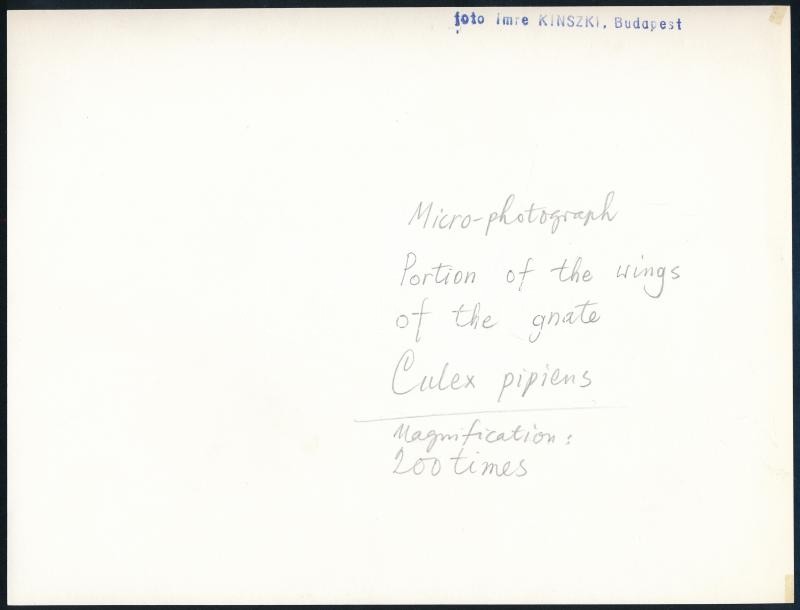 foto Imre KINSZKI, Budapest
Micro-photograph
Portion of the wings
of the gnate
Culex pipiens
Magnification:
200 times